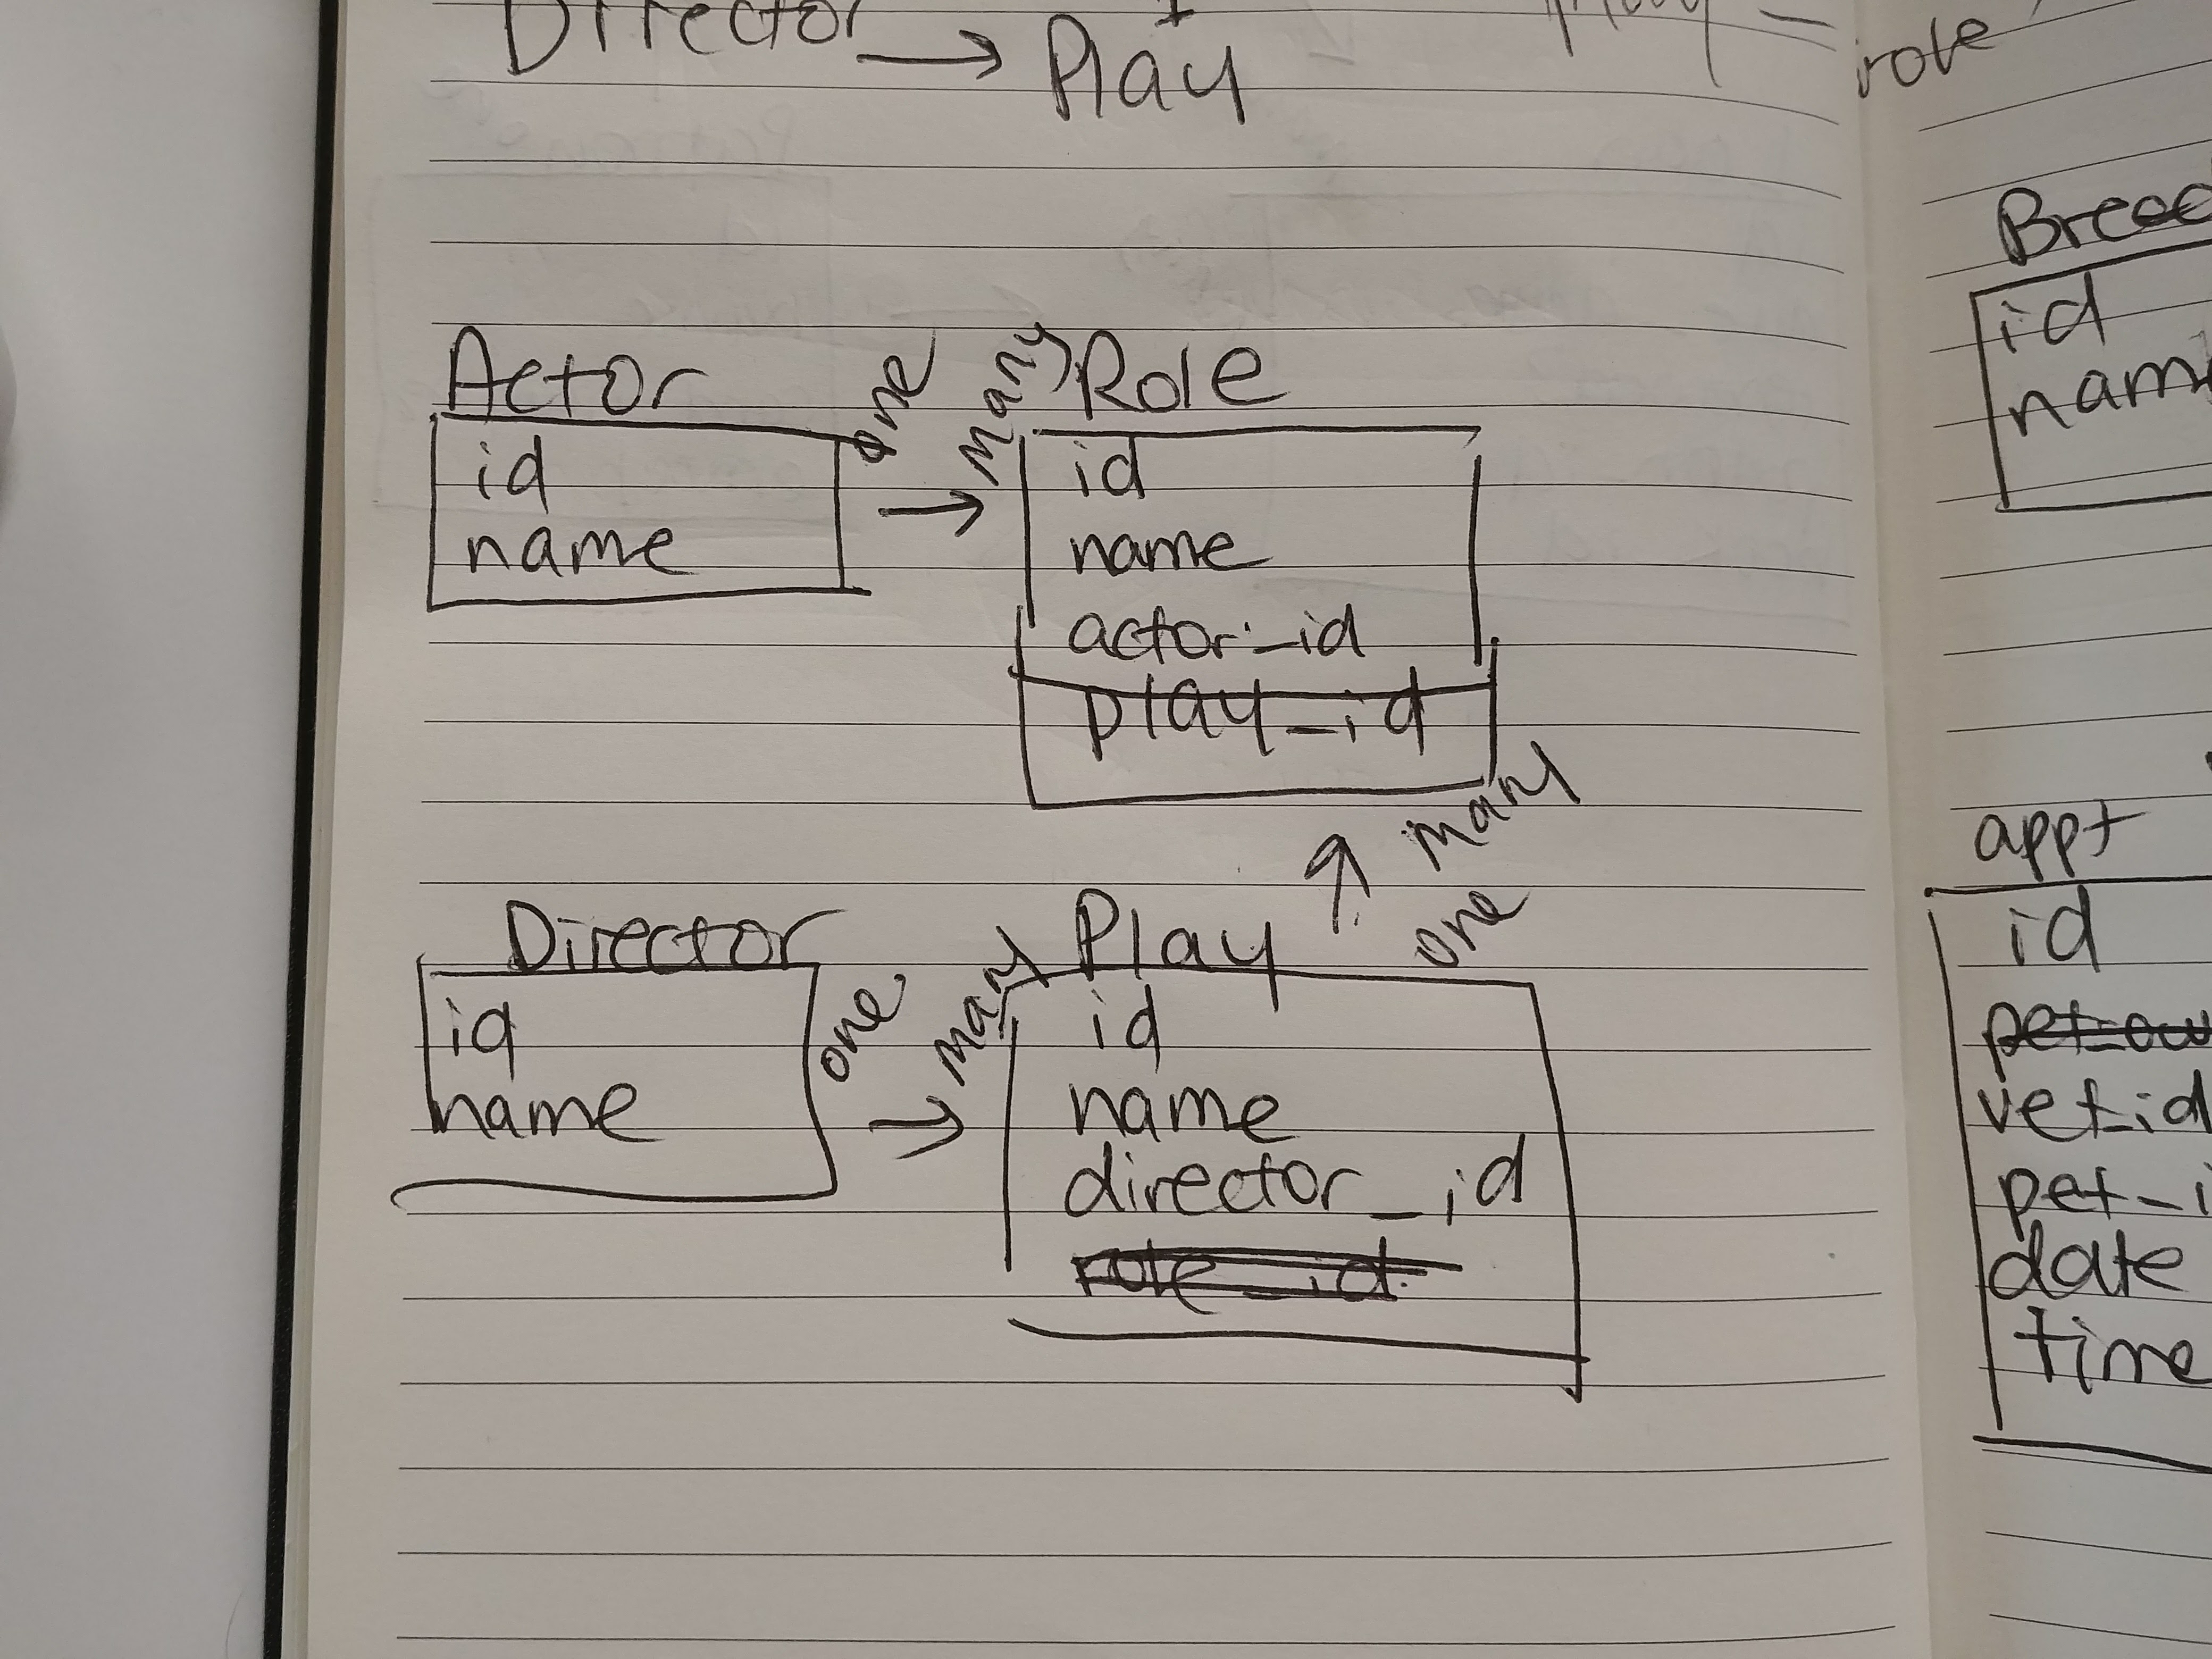 Director → Play
Actor
id
name
one → many
Role
id
name
actor_id
play_id
many
↑
one
Director
id
name
one → many
Play
id
name
director_id
role_id
role
Breed
id
appt
id
vet_id
date
time